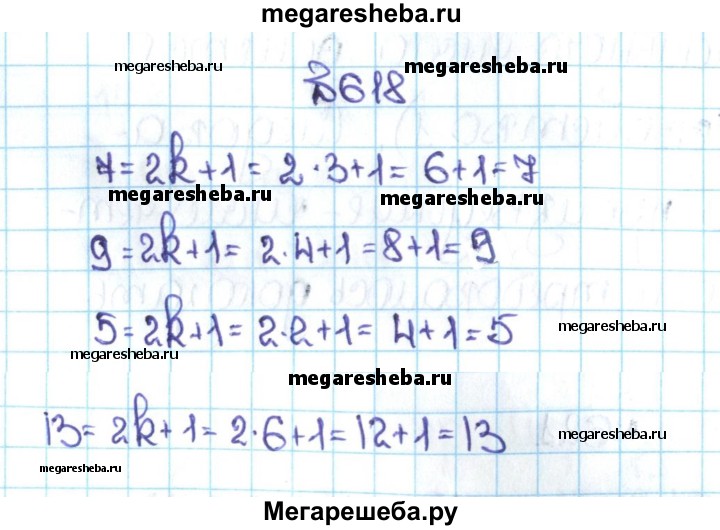 megaresheba.ru
megaresheba.ru megaresheba.ru
№618
7=2k+1= 2·3+1= 6+1=7
megaresheba.ru megaresheba.ru
9=2k+1= 2·4+1=8+1=9
5=2k+1= 2·2+1= 4+1=5 megaresheba.ru
megaresheba.ru
megaresheba.ru
13= 2k+1= 2·6+1=12+1=13 megaresheba.ru
megaresheba.ru
Мегарешеба.ру